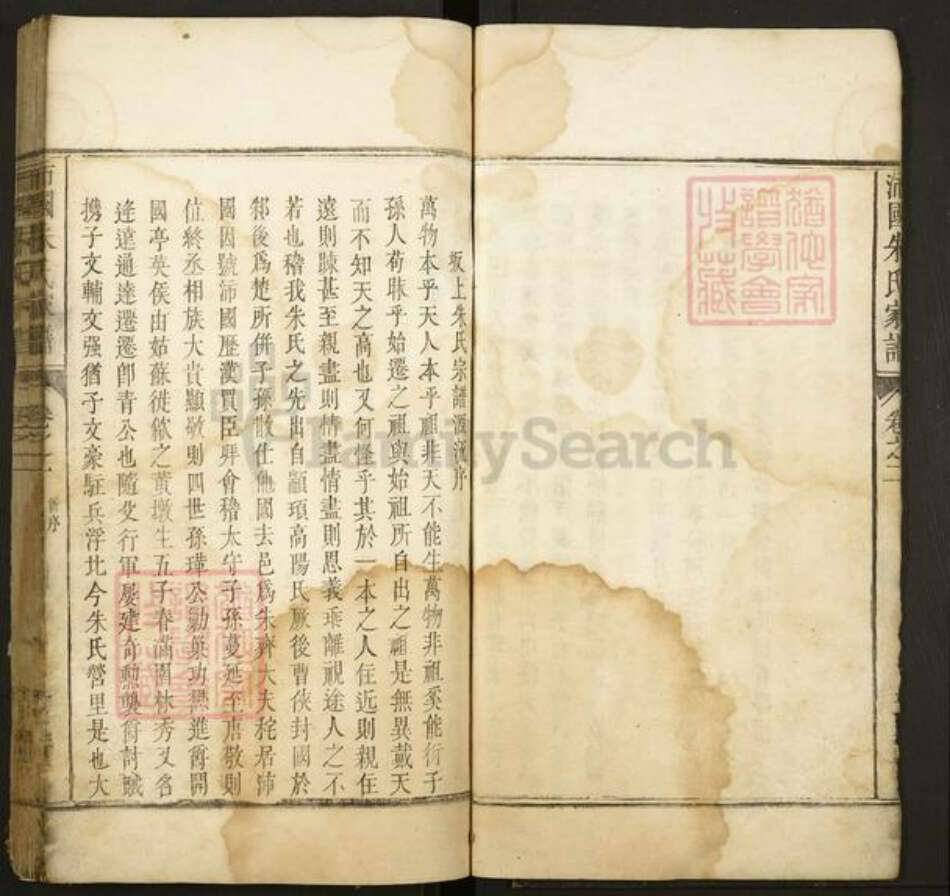 沛國朱氏家譜 卷之二
猶他家譜學會收藏
坂上朱氏宗譜源流序
萬物本乎天人本乎祖非天不能生萬物非祖奚能衍子
孫人苟昧乎始遷之祖與始祖所自出之祖是無異戴天
而不知天之高也又何怪乎其於一本之人住近則親住
遠則踈甚至親盡則情盡情盡則恩義乖離視途人之不
若也稽我朱氏之先出自顓頊高陽氏厥後曹俠封國於
邾後為楚所併子孫散仕他國去邑為朱齊大夫秺居沛
國因號沛國歷漢買臣拜會稽太守子孫蔓延至唐敬則
位終丞相族大貴顯敬則四世孫瑋公勦巢功懋進爵開
國亭英侯由姑蘇徙歙之黃墩生五子春滿園林秀又名
逢達通達遷遷即青公也隨父行軍屢建奇勲襲爵討賊
攜子文輔文强猶子文豪駐兵浮北今朱氏營里是也大
國朱氏家譜 卷之二 舊序
FamilySearch